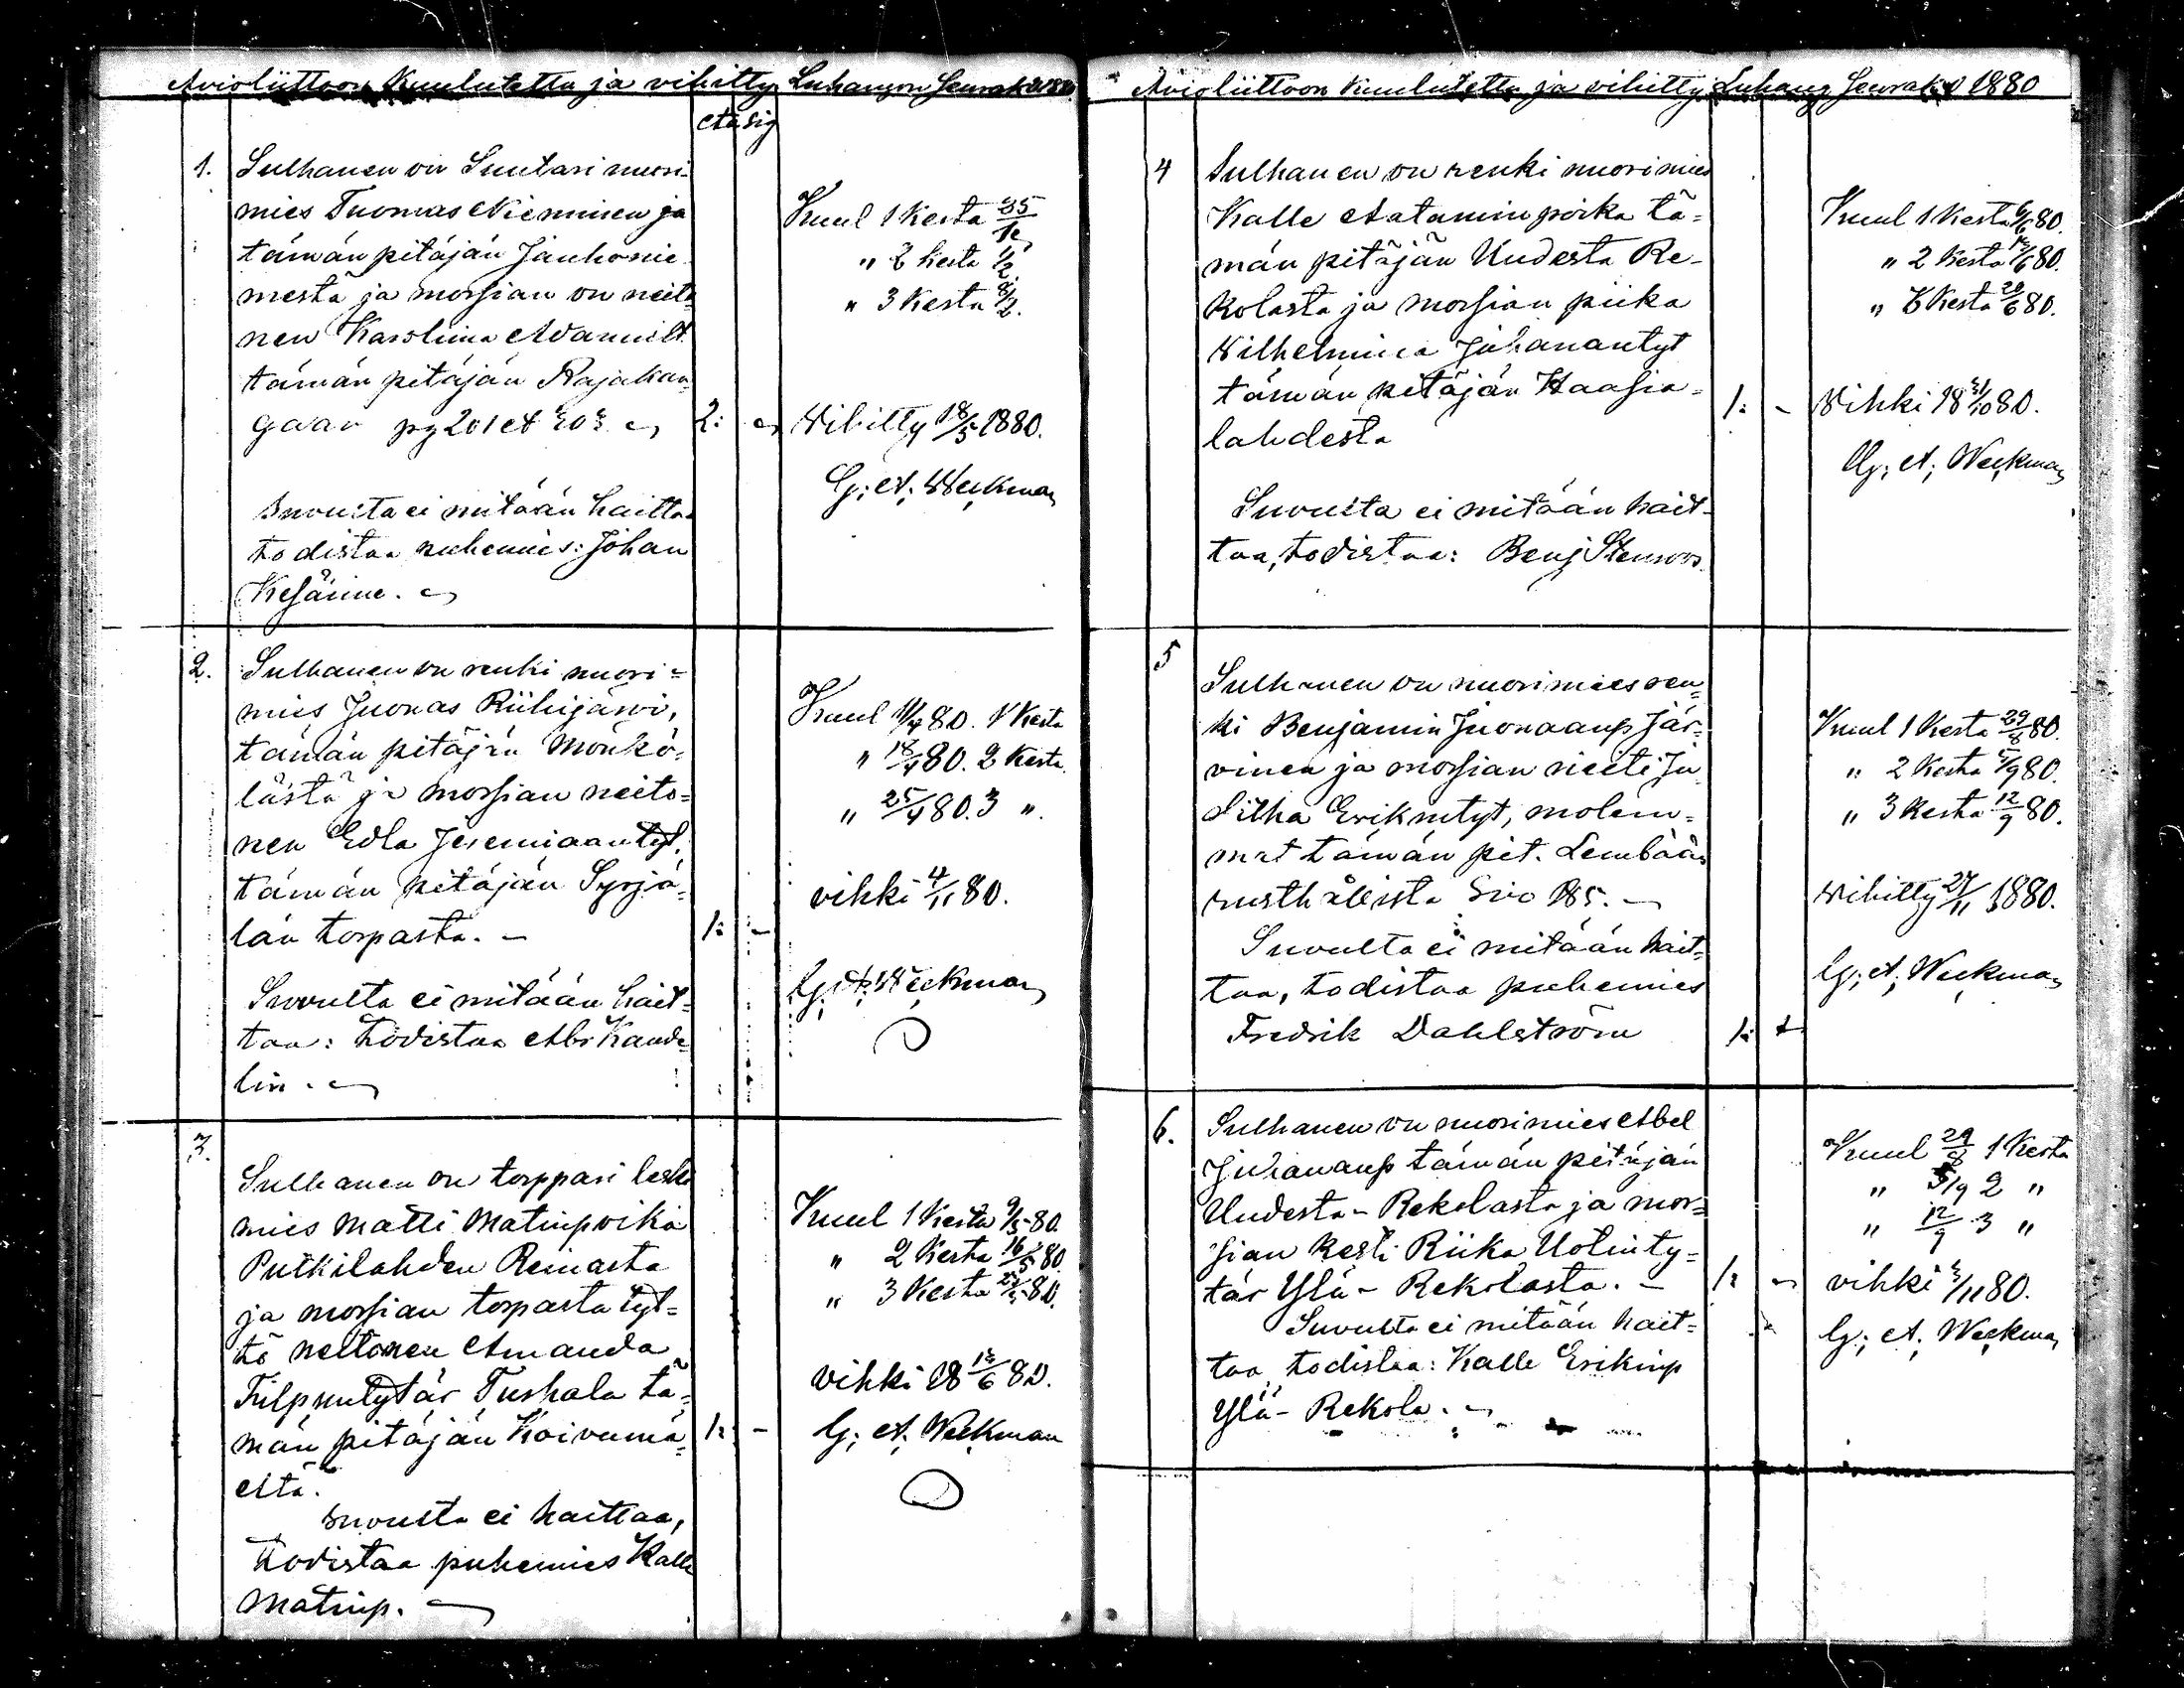 Avioliittoon Kuulutettu ja vihitty Luhangon Seurak 1880
1. Sulhanen on Suutari nuori-
mies Tuomas Nieminen ja
tämän pitäjän Jänhönie
mestä ja morsian on neito
nen Karoliina
tämän pitäjän Rajakan
gaan pg 201
Suvusta ei mitään haittaa
todistaa puhemies: Johan
Kuul 1 Kerta 25/1
" 2 Kerta 1/2
" 3 Kerta 8/2.
2:
Vihitty 18/5 1880.
G: A: Weckman
2. Sulhanen on renki nuori=
mies Juonas Riihijärvi,
tämän pitäjän Mönkö-
lästä ja morsian neito=
nen Edla Jeremiaantyt.
tämän pitäjän Syrjä-
län torpasta. -
Suvulta ei mitään hait=
taa: todistaa Abr Kande
lin.
Kuul 11/4 80. 1 Kerta
" 18/4 80. 2 Kerta.
" 25/4 80. 3 ".
1: -
vihki 4/11 80.
G: A: Weckman
3.
Sulhanen on torppari leski
mies Matti Matinpoika
Putkilahden Reinasta
ja morsian torparin tyt=
tö neitonen Amanda
Filpuntytär Tushala tä=
män pitäjän Koivumä-
eltä.
Suvusta ei haittaa,
todistaa puhemies Kalle
Matinp.
Kuul 1 Kerta 9/5 80.
" 2 Kerta 16/5 80.
" 3 Kerta 80.
1: -
vihki 18 /6 80.
G: A: Weckman
Avioliittoon Kuulutettu ja vihitty Luhang Seurak 1880
4 Sulhanen on renki nuori mies
Kalle Aataminpoika tä=
män pitäjän Uudesta Re-
kolasta ja morsian piika
Wilhelmiina Juhanantyt
tämän pitäjän Haasia-
lahdesta
Suvulta ei mitään hait-
taa, todistaa: Benj Stenroos.
Kuul 1 Kerta 6/6 80.
" 2 Kerta 80.
" 3 Kerta 20/6 80.
1: -
Vihki 18 /10 80.
G: A: Weckman
5
Sulhanen on nuori mies ren
ki Benjamin Juonaanp Jär-
vinen ja morsian neiti Ju
ditha Erikintyt, molem=
mat tämän pit. Lembään
rusthållista Sivu 185. -
Suvulta ei mitään hait=
taa, todistaa puhemies
Fredrik Dahlström
Kuul 1 Kerta 29/8 80.
" 2 Kerta 5/9 80.
" 3 Kerta 12/9 80.
Vihitty 27/11 1880.
G: A: Weckman
1:
6. Sulhanen on nuori mies Abel
Juhananp tämän pitäjän
Uudesta-Rekolasta ja mor=
sian leski Riika Uotinty=
tär Ylä-Rekolasta. -
Suvulta ei mitään hait=
taa todistaa: Kalle Erikinp
Ylä-Rekola. -
Kuul 29/8 1 Kerta
" 5/9 2 "
" 12/9 3 "
1: -
vihki /11 80.
G: A: Weckman